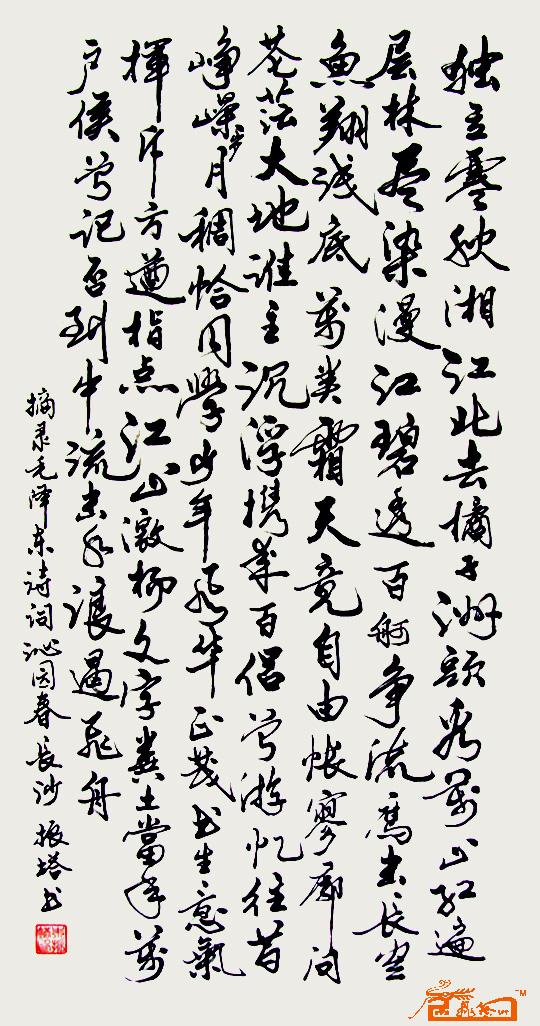 独立寒秋湘江北去橘子洲頭看萬山红遍
层林尽染漫江碧透百舸争流鹰击长空
魚翔浅底萬类霜天竞自由怅寥廓问
苍茫大地谁主沉浮携来百侣曾游忆往昔
峥嵘岁月稠恰同學少年风华正茂书生意氣
揮斥方遒指点江山激扬文字粪土當年萬
户侯曾记否到中流击水浪遏飞舟
摘录毛泽东诗词沁园春长沙 振塔书